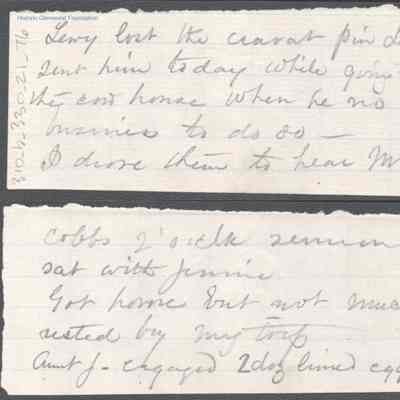 Historic Glenwood Foundation
Lewy lost the cravat pin
sent him today while going
the cow house when he no
business to do so —
I drove them to hear M
cobbs 2 o'clk sermon
sat with Jennie
Got home but not muc
rested by my trip
Aunt J- engaged 2 doz limed egg